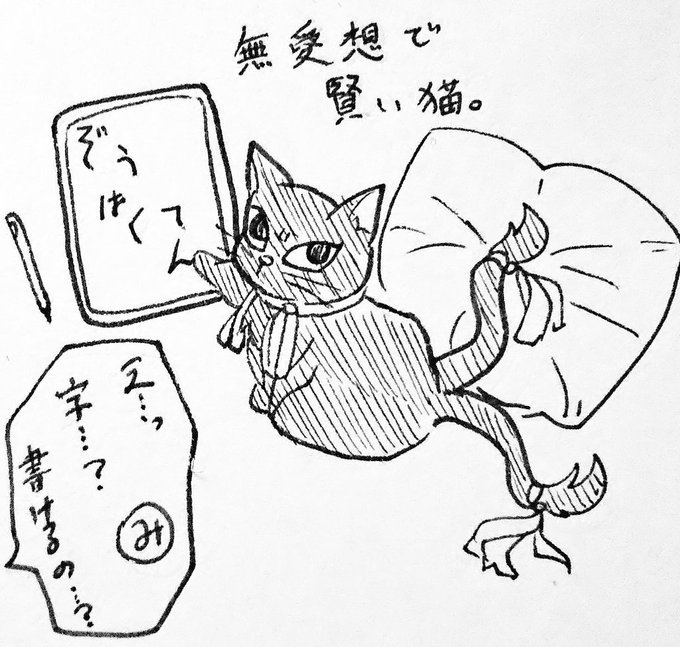 無愛想で
賢い猫。
ぞうは
くてん
え…っ
字…?
書けるの…?
み